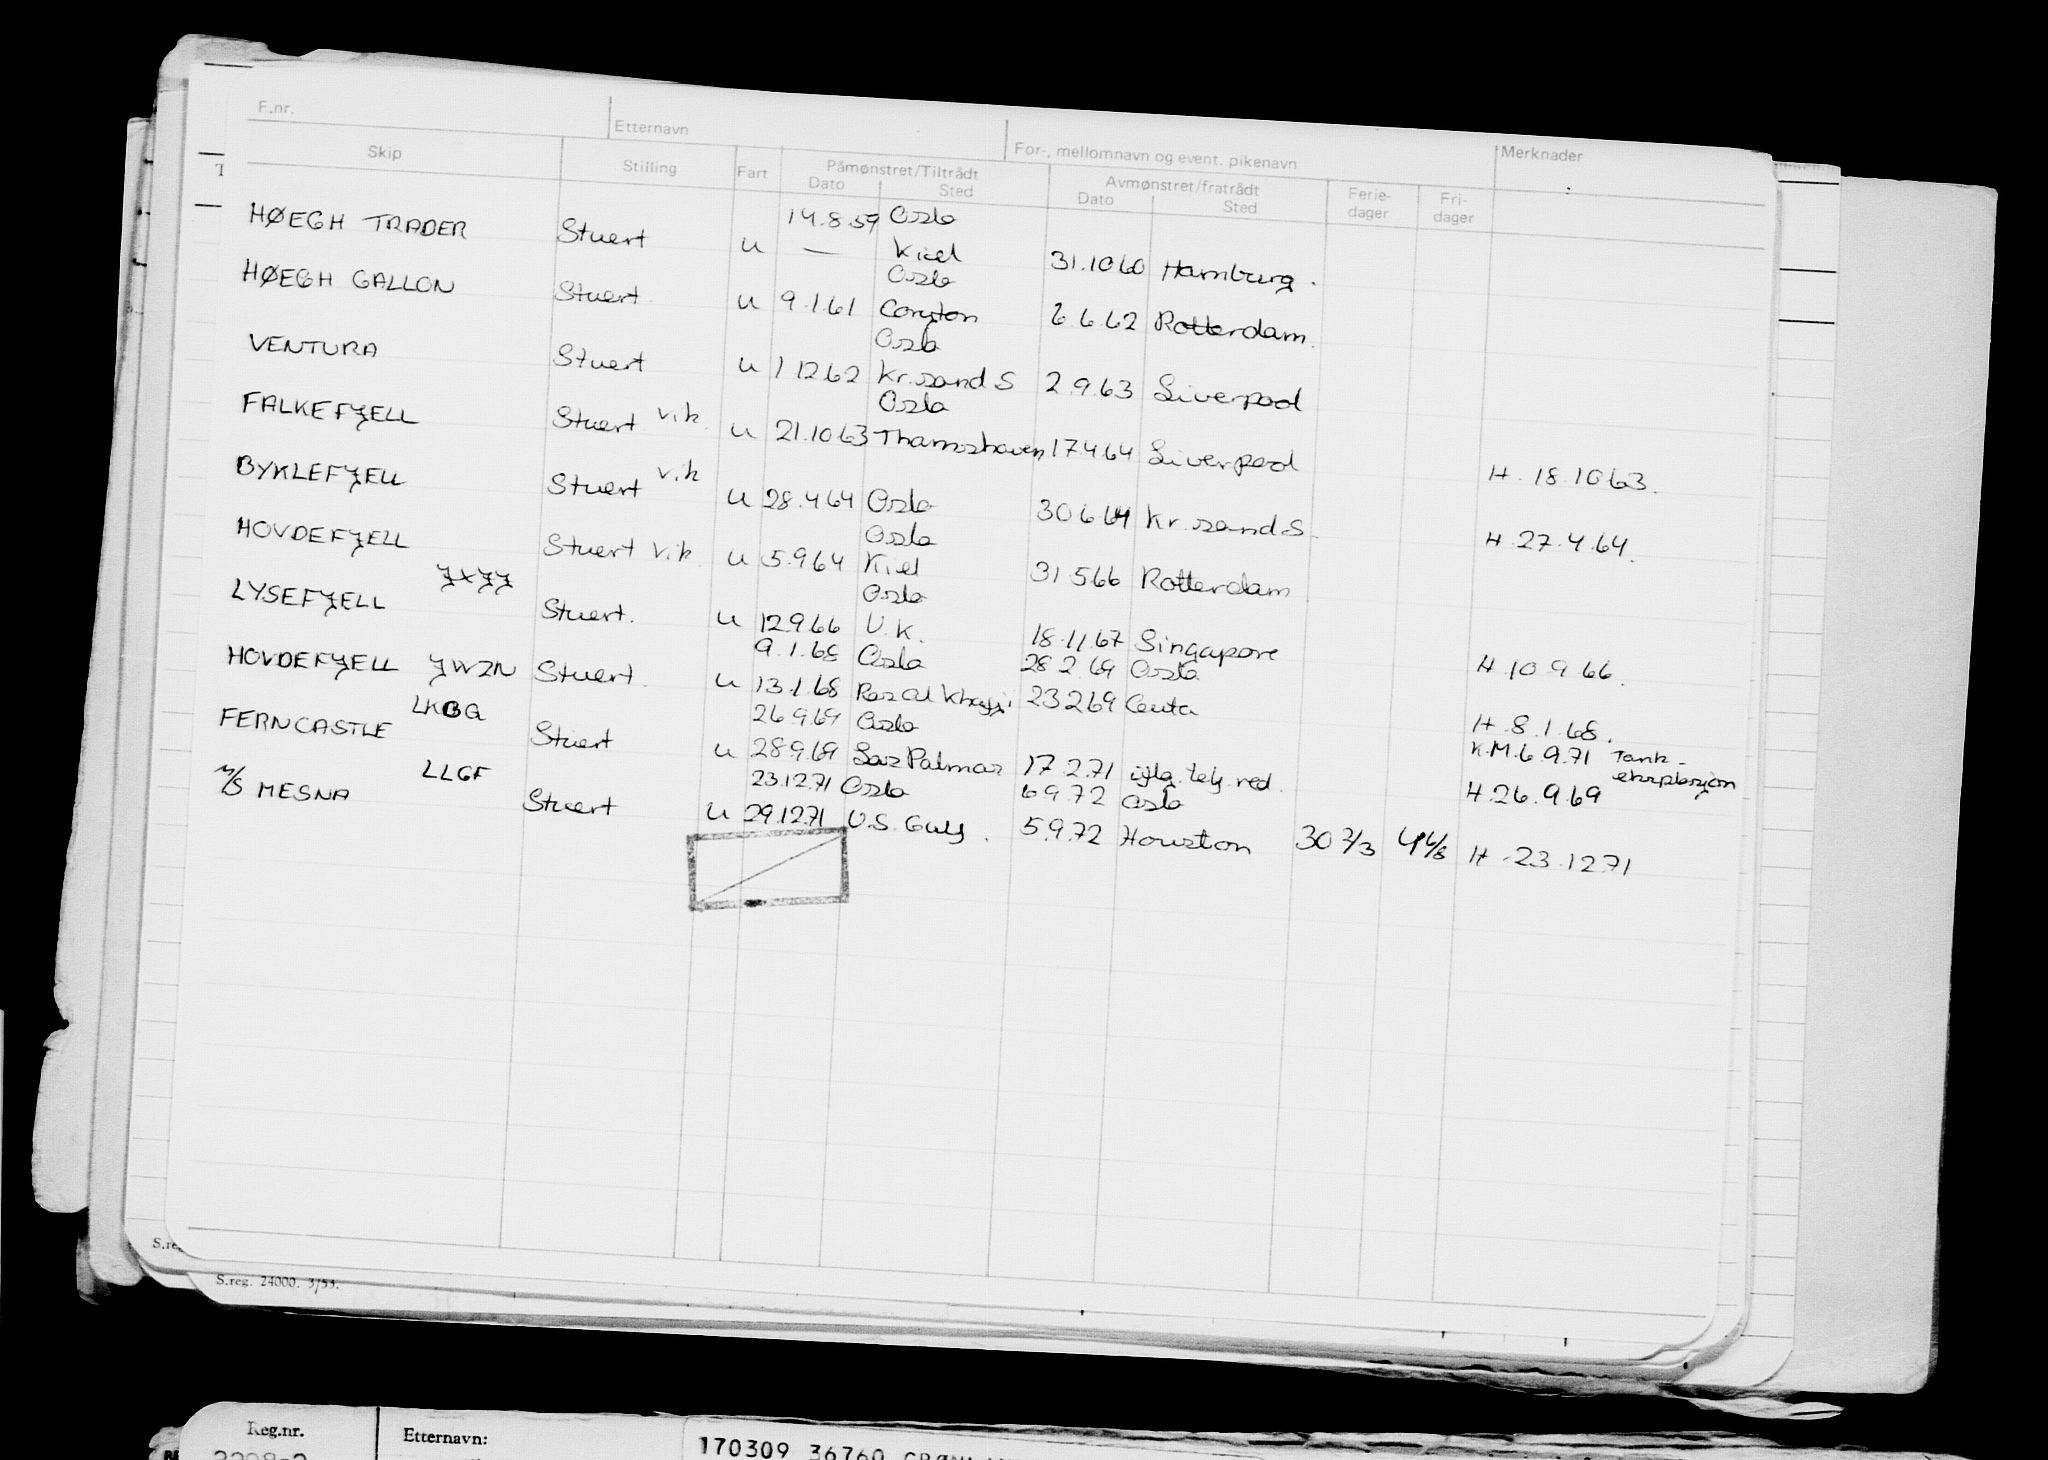 F.nr. Etternavn For-, mellomnavn og event. pikenavn Merknader
Skip Stilling Fart Påmønstret/Tiltrådt Avmønstret/fratrådt Ferie- Fri-
Dato Sted Dato Sted dager dager
14.8.59 Oslo
HØEGH TRADER Stuert u — Kiel 31.10 60 Hamburg.
Oslo
HØEGH GALLON Stuert. u 9.1.61 Coryton 6.6.62 Rotterdam.
Oslo
VENTURA Stuert u 1 12 62 Kr.sand S 2.9.63 Liverpool
Oslo
FALKEFJELL Stuert v.ik. u 21.10 63 Thamshaven 17 4 64 Liverpool H. 18.10 63.
BYKLEFJELL Stuert v.ik u 28.4 64 Oslo 30 6 64 Kr.sand S. H. 27.4.64.
Oslo
HOVDEFJELL Stuert v.ik. u 5.9 64 Kiel 31 5 66 Rotterdam
JXJJ Oslo
LYSEFJELL Stuert. u 12.9.66 U.K. 18.11.67 Singapore H 10 9 66.
9.1.68 Oslo 28 2.69 Oslo
HOVDEFJELL JWZN Stuert. u 13.1.68 Ras al Khafji 23 2 69 Ceuta H 8.1.68.
LKBG 26 9 69 Oslo K.M. 6.9.71 Tank-
FERNCASTLE Stuert u 28 9.69 Las Palmas 17.2.71 iflg. tlf. red. eksplosjon
H.26.9.69
LLGF 23.12.71 Oslo 6 9.72 Oslo
M/S MESNA Stuert u 29.12.71 U.S. Gulf. 5.9.72 Houston 30 2/3 H. 23.12 71
S.reg
S.reg. 24000. 3/53.
Reg.nr. Etternavn: 170309 36760